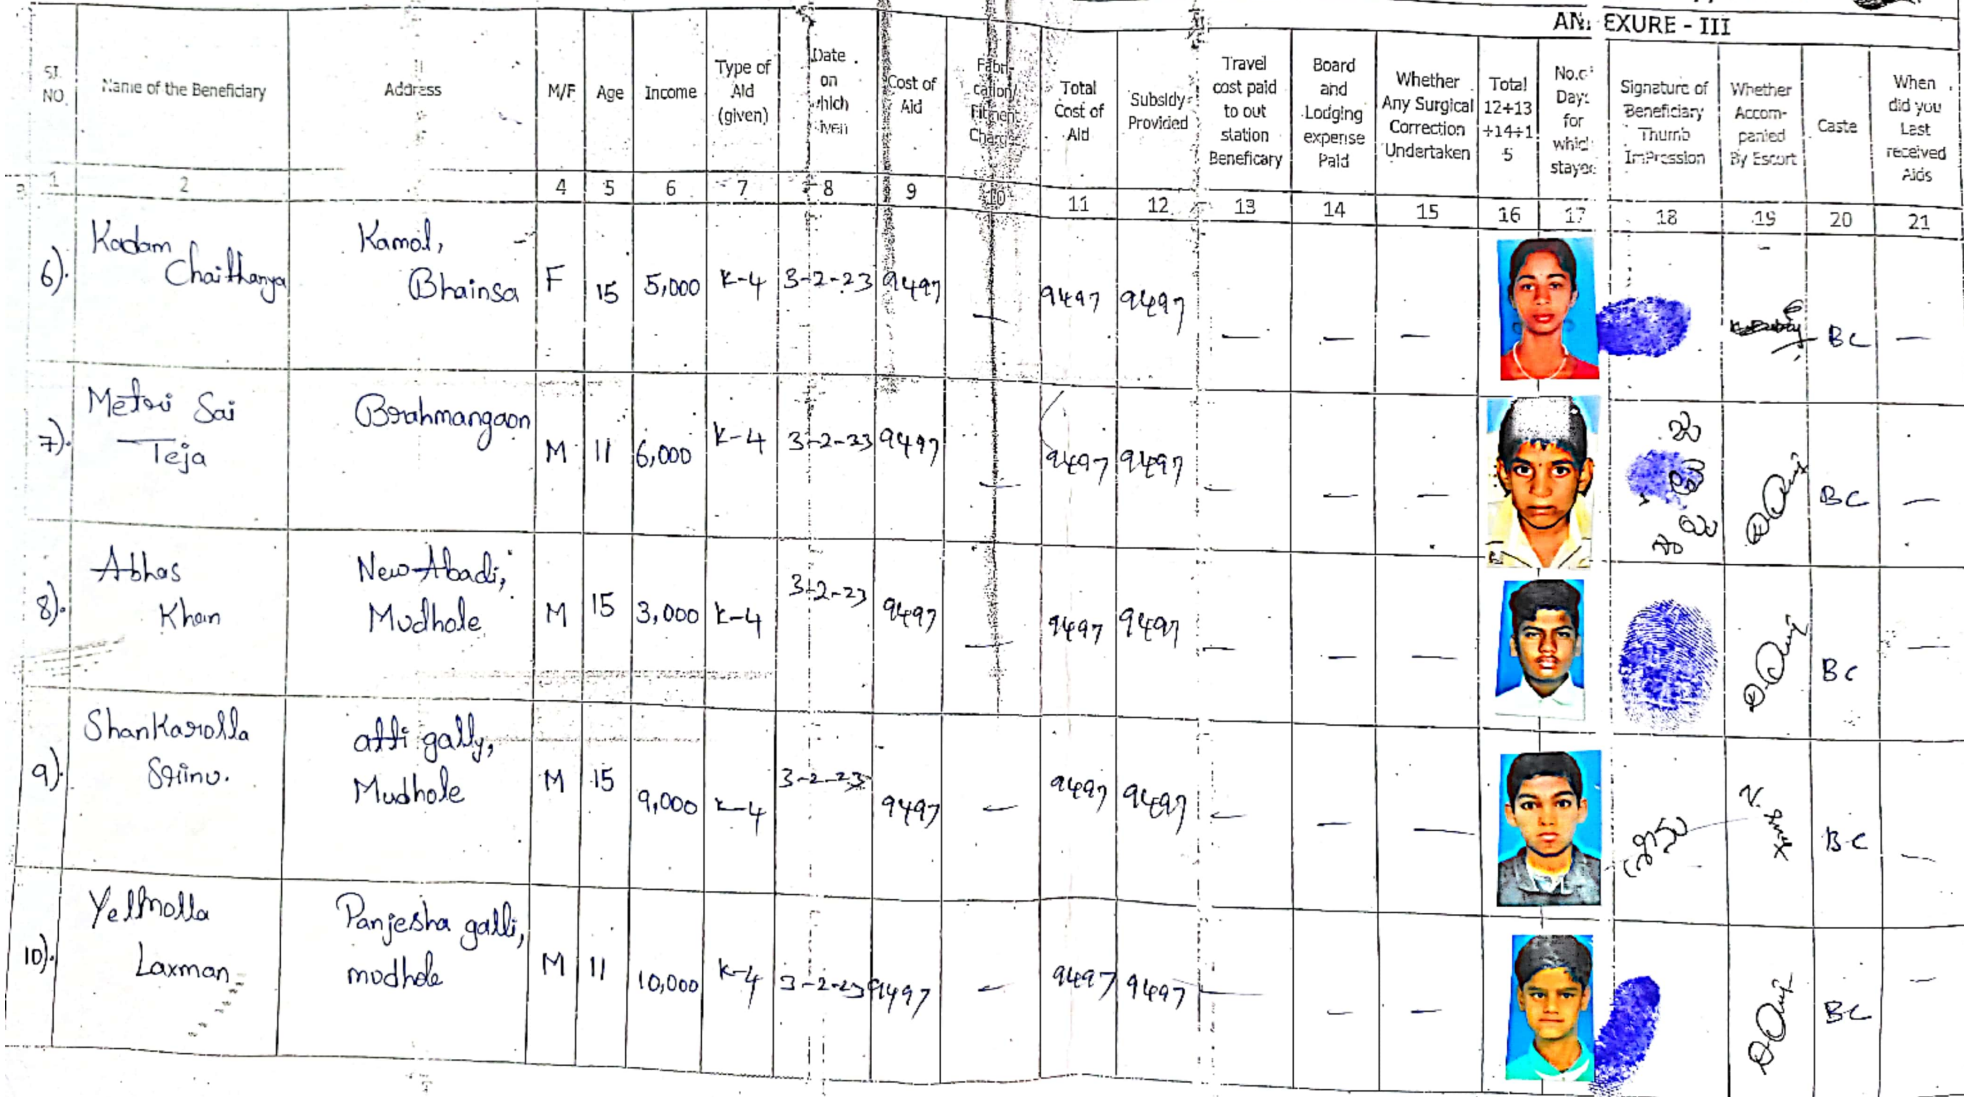 ANNEXURE - III
Sl. NO. Name of the Beneficiary Address M/F Age Income Type of Aid (given) Date on which given Cost of Aid Fabrication/Fitment Charges Total Cost of Aid Subsidy Provided Travel cost paid to out station Beneficary Board and Lodging expense Paid Whether Any Surgical Correction Undertaken Total 12+13+14+15 No.of Days for which stayed Signature of Beneficiary Thumb ImPression Whether Accom-panied By Escort Caste When did you Last received Aids
1 2 4 5 6 7 8 9 10 11 12 13 14 15 16 17 18 19 20 21
6). Kadam Chaithanya Kamol, Bhainsa F 15 5,000 K-4 3-2-23 9497 — 9497 9497 — — — BC —
7). Metri Sai Teja Brahmangaon M 11 6,000 K-4 3-2-23 9497 — 9497 9497 — — — BC —
8). Abhas Khan New Abadi, Mudhole M 15 3,000 K-4 3-2-23 9497 — 9497 9497 — — — BC —
9). Shankarolla Srinu. atti gally, Mudhole M 15 9,000 K-4 3-2-23 9497 — 9497 9497 — — — BC —
10). Yellmolla Laxman Panjesha galli, mudhole M 11 10,000 K-4 3-2-23 9497 — 9497 9497 — — — BC —